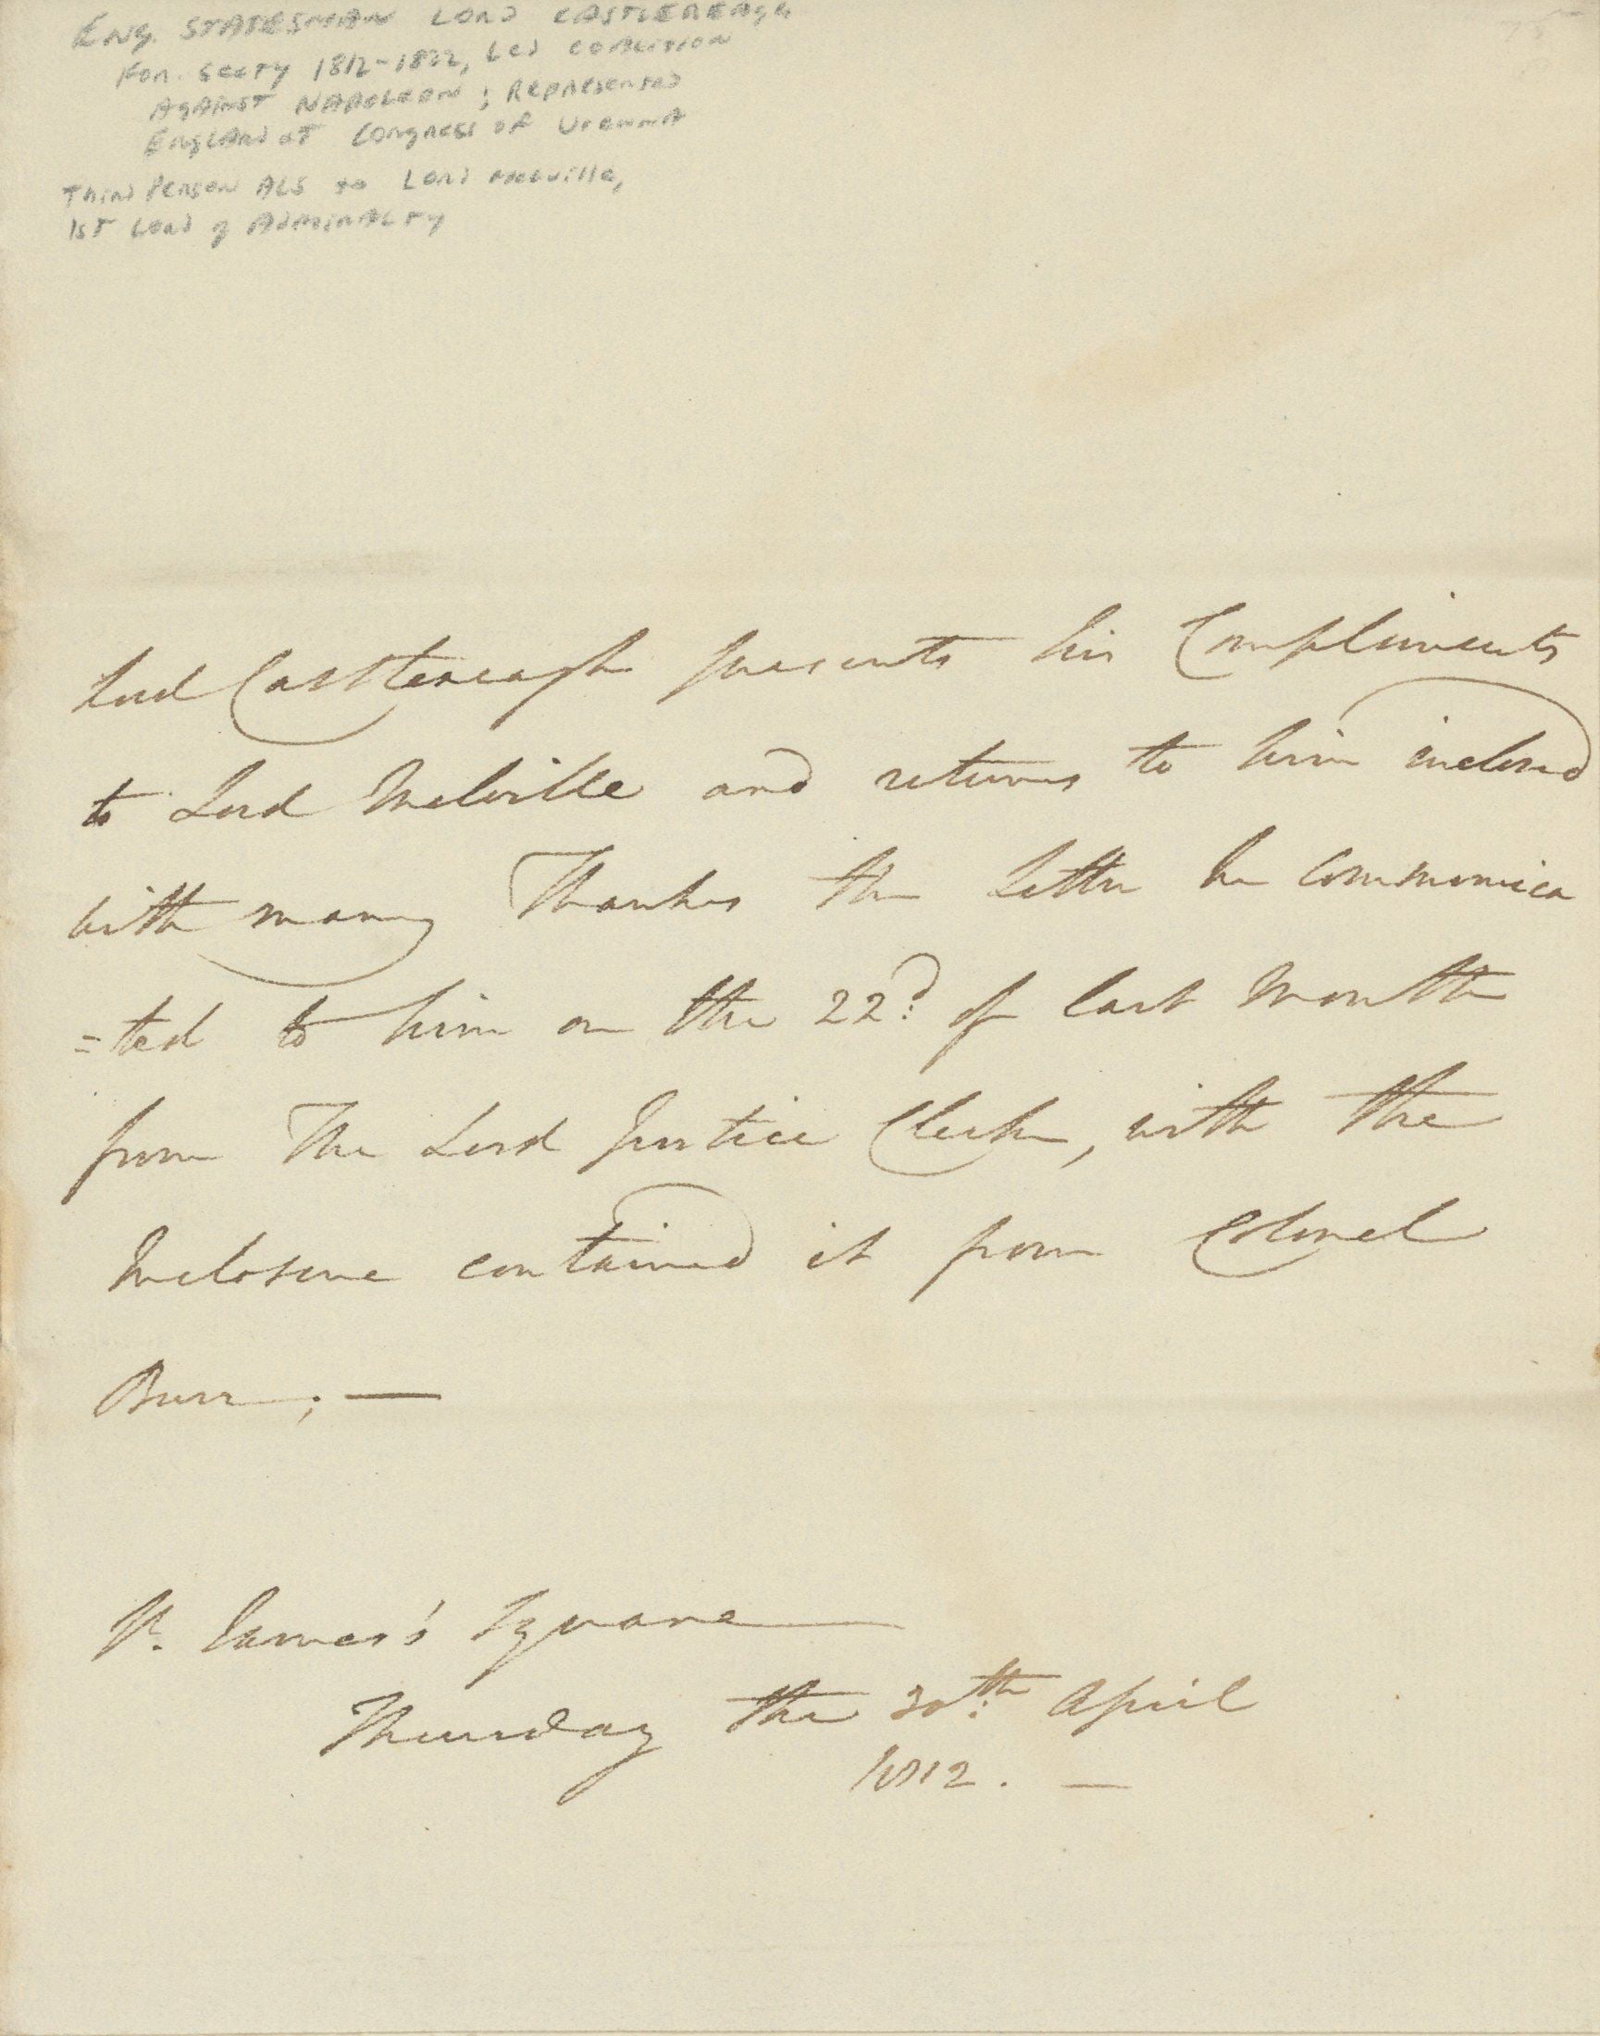 ENG. STATESMAN LORD CASTLEREAGH
FOR. SECTY 1812-1822, LED COALITION
AGAINST NAPOLEON; REPRESENTED
ENGLAND AT CONGRESS OF VIENNA
THIRD PERSON ALS TO LORD MELVILLE,
1ST LORD OF ADMIRALTY
75
Lord Castlereagh presents his Compliments
to Lord Melville and returns to him inclosed
with many Thanks the Letter he communica
=ted to him on the 22d. of last Month
from The Lord Justice Clerk, with the
Inclosure contained it from Colonel
Burr; —
St. James's Square
Thursday the 30th. April
1812. —